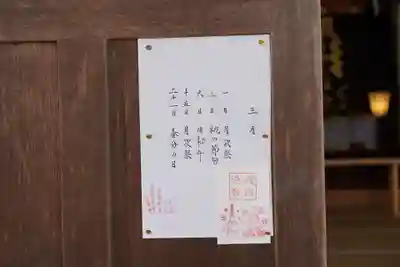 三月
一日 月次祭
三日 桃の節句
六日 初午
十五日 月次祭
二十一日 春分の日